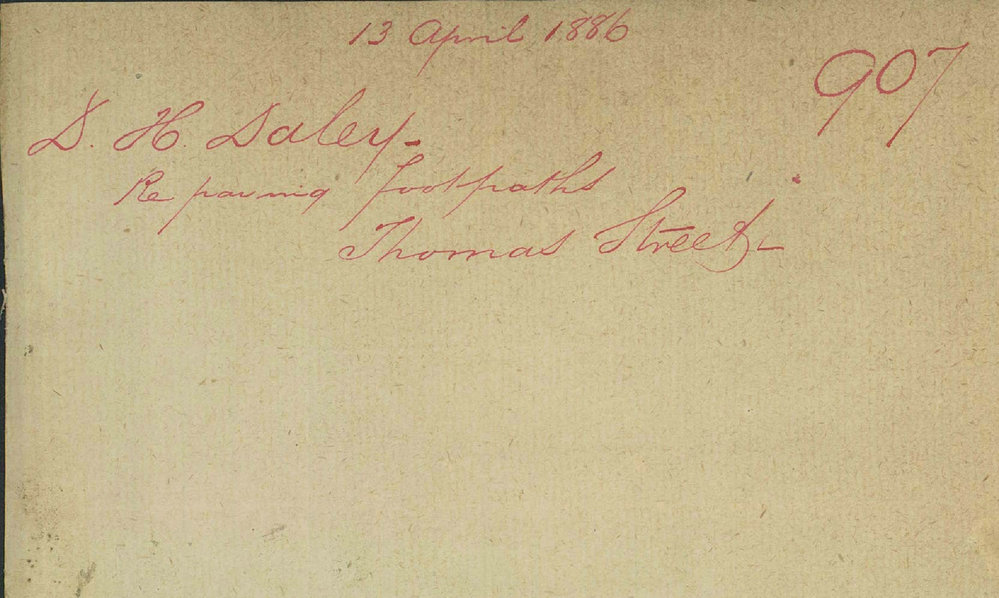 13 April 1886
907
D. H. Daley -
Re paving footpaths
Thomas Street -